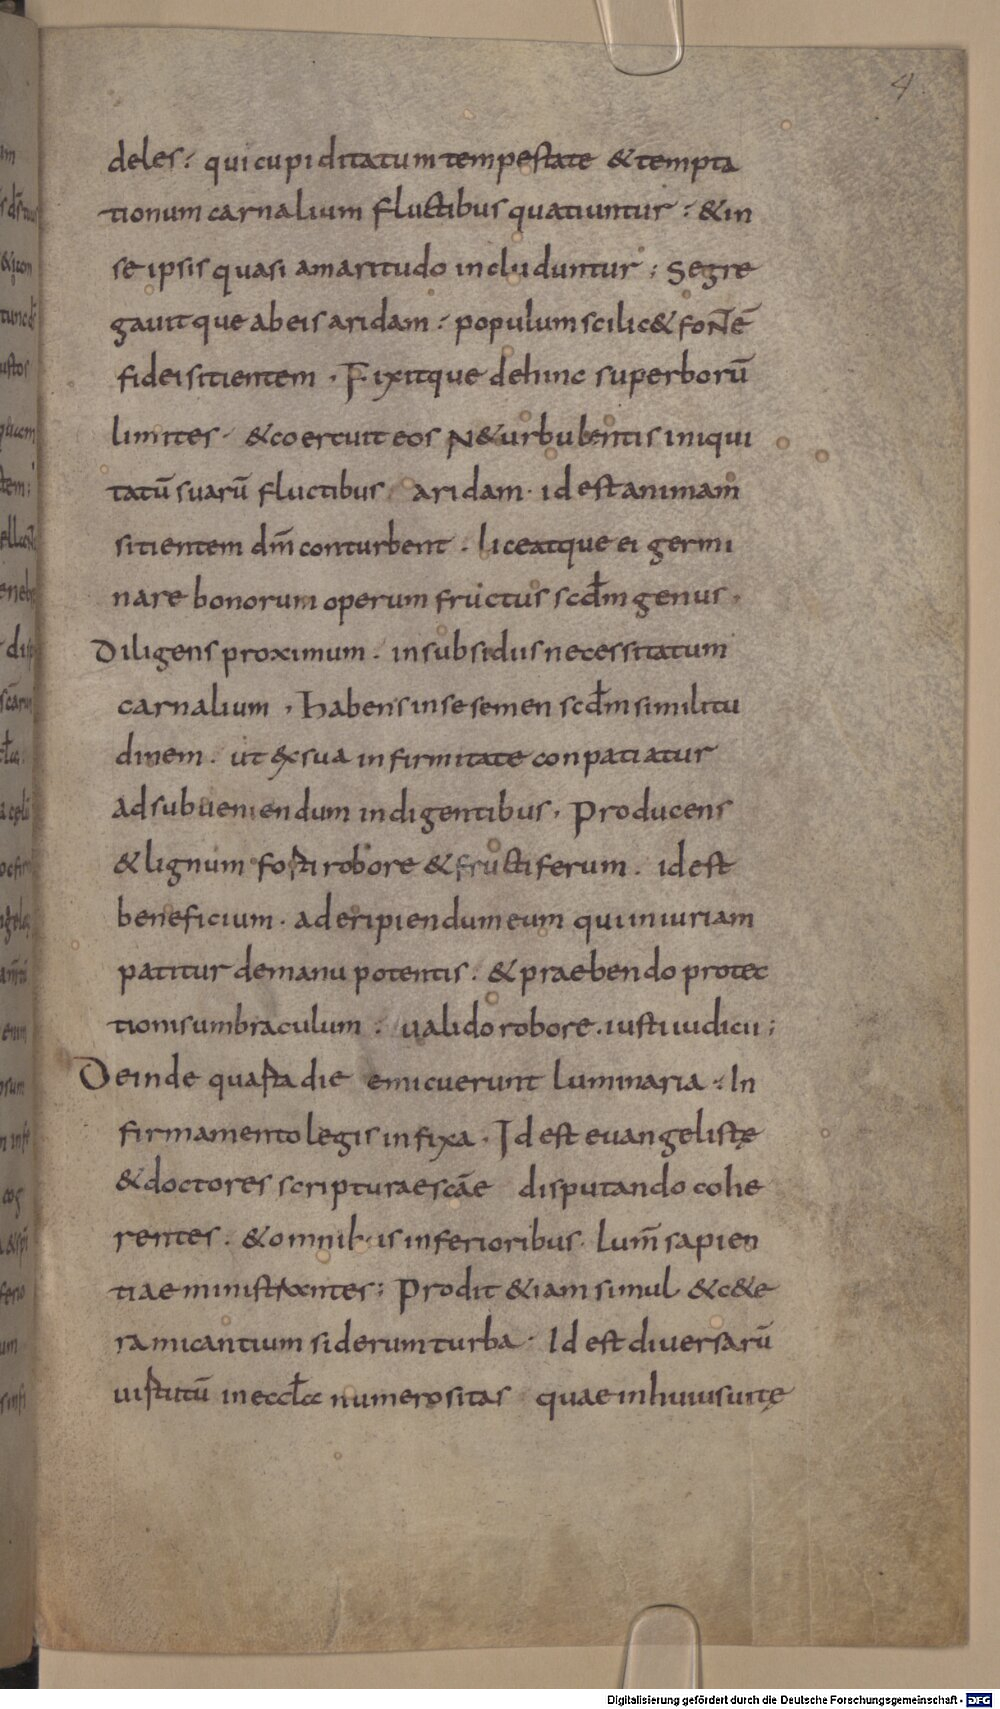 4
deles: qui cupiditatum tempestate & tempta
tionum carnalium fluctibus quatiuntur: & in
se ipsis quasi amaritudo includuntur; Segre
gauitque ab eis aridam: populum scilic& foNtē
fidei sitientem. Fixitque dehinc superborū
limites. & coercuit eos N& urbulentis iniqui
tatū suarū fluctibus aridam. id est animam
sitientem dm̄ conturbent. liceatque ei germi
nare bonorum operum fructus scdm̄ genus.
Diligens proximum. in subsidiis necessitatum
carnalium. Habens in se semen scdm̄ similitu
dinem. ut ex sua infirmitate conpatiatur
ad subueniendum indigentibus. Producens
& lignum forti robore & fructiferum. id est
beneficium. ad eripiendum eum qui iniuriam
patitur de manu potentis. & praebendo protec
tionis umbraculum: ualido robore. iusti iudicii;
Deinde quarta die emicuerunt luminaria: In
firmamento legis infixa. Id est euangelistę
& doctores scripturae scāe disputando cohe
rentes. & omnibus inferioribus. lum̄ sapien
tiae ministrantes; Prodit &iam simul & c&e
ra micantium siderum turba. Id est diuersarū
uirtutū in eccła numerositas quae in huius uitę
Digitalisierung gefördert durch die Deutsche Forschungsgemeinschaft - DFG